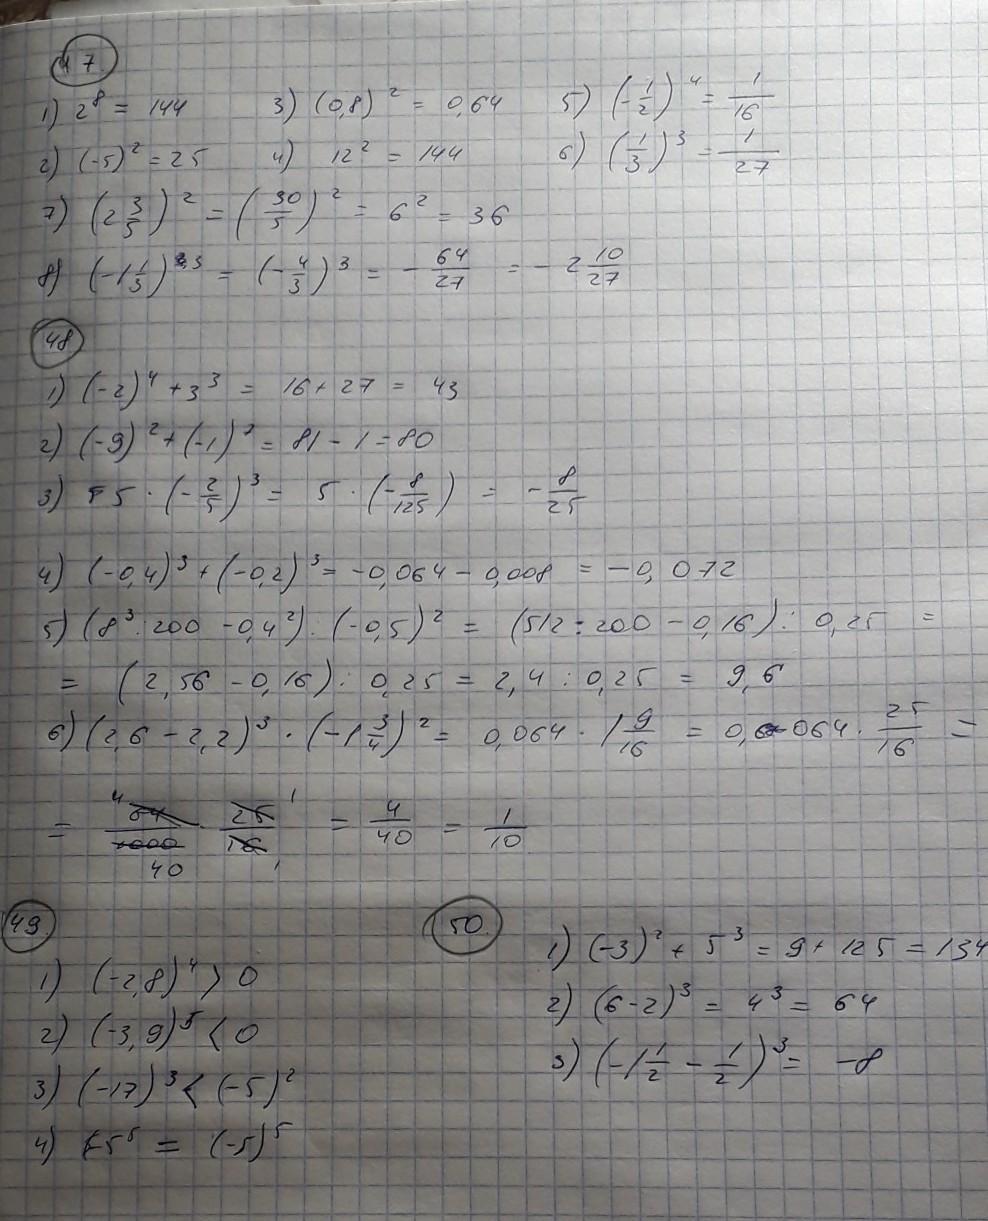 47
1) 2^8 = 144 3) (0,8)^2 = 0,64 5) (-1/2)^4 = 1/16
2) (-5)^2 = 25 4) 12^2 = 144 6) (1/3)^3 = 1/27
7) (2 3/5)^2 = (30/5)^2 = 6^2 = 36
8) (-1 1/3)^3 = (-4/3)^3 = -64/27 = -2 10/27
48
1) (-2)^4 + 3^3 = 16 + 27 = 43
2) (-9)^2 + (-1)^3 = 81 - 1 = 80
3) 5 · (-2/5)^3 = 5 · (-8/125) = -8/25
4) (-0,4)^3 + (-0,2)^3 = -0,064 - 0,008 = -0,072
5) (8^3 : 200 - 0,4^2) : (-0,5)^2 = (512 : 200 - 0,16) : 0,25 =
= (2,56 - 0,16) : 0,25 = 2,4 : 0,25 = 9,6
6) (2,6 - 2,2)^3 · (-1 3/4)^2 = 0,064 · 1 9/16 = 0,064 · 25/16 =
= 4 64/1000 40 · 25 1/16 1 = 4/40 = 1/10
49. 50.
1) (-2,8)^4 > 0 1) (-3)^2 + 5^3 = 9 + 125 = 134
2) (-3,9)^5 < 0 2) (6-2)^3 = 4^3 = 64
3) (-17)^3 < (-5)^2 3) (-1 1/2 - 1/2)^3 = -8
4) -5^5 = (-5)^5